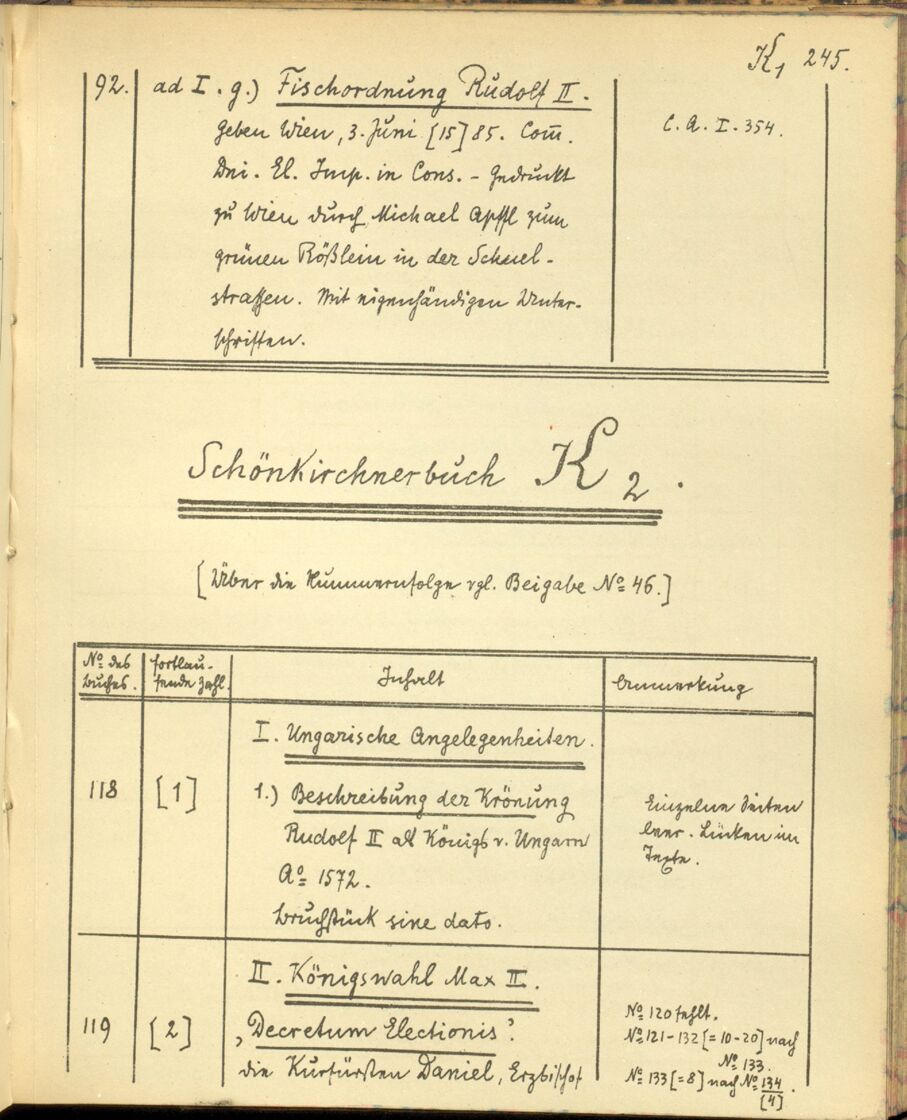 K1 245.
92. ad I. g.) Fischordnung Rudolf II.
Geben Wien, 3. Juni [15]85. Com̅. C. A. I. 354.
Dni. El. Imp. in Cons. - Gedruckt
zu Wien durch Michael Apffl zum
grünen Rößlein in der Schuel-
strassen. Mit eigenhändigen Unter-
schriften.
Schönkirchnerbuch K2.
[Über die Nummernfolge vgl. Beigabe No 46.]
No des fortlau- Inhalt Anmerkung
Buches. fende Zahl.
I. Ungarische Angelegenheiten.
118 [1] 1.) Beschreibung der Krönung Einzelne Seiten
Rudolf II als Königs v. Ungarn leer. Lücken im
Ao 1572. Texte.
Bruchstück sine dato.
II. Königswahl Max II.
119 [2] „Decretum Electionis". No 120 fehlt.
No 121-132 [=10-20] nach
No 133.
die Kurfürsten Daniel, Erzbischof No 133 [=8] nach No 134.
[4]